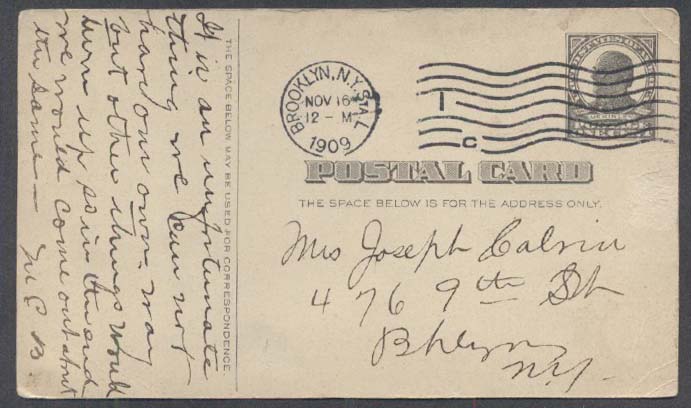 It is an unfortunate
thing we can not
have our own way
but other things would
turn up so in the end
we would come out about
the same —
THE SPACE BELOW MAY BE USED FOR CORRESPONDENCE.
BROOKLYN, N.Y. STA. L
NOV 16
12 - M
1909
1
C
McKINLEY
POSTAL CARD
THE SPACE BELOW IS FOR THE ADDRESS ONLY.
Mrs Joseph Calvin
476 9th St
Bklyn
NY-